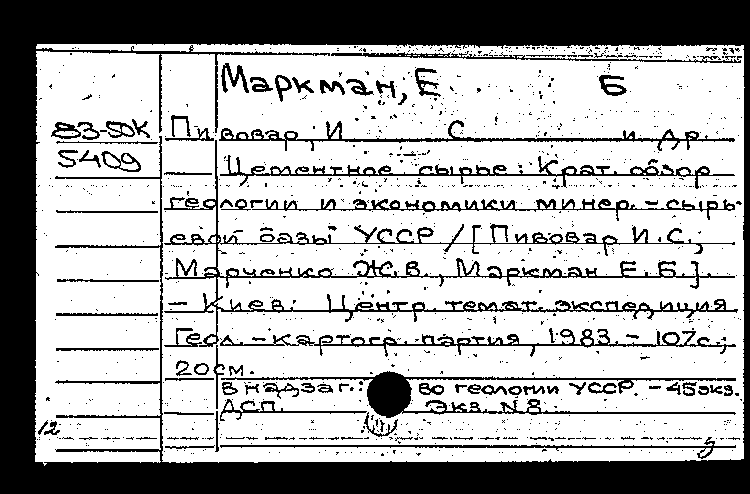 Маркман, Е Б
83-50К Пивовар, И С и др.
5409 Цементное сырье: Крат. обзор
геологии и экономики минер.-сырь-
евой базы УССР / [Пивовар И.С.,
Марченко Ж.В., Маркман Е.Б.].
- Киев: Центр. темат. экспедиция
Геол.-картогр. партия, 1983. - 107с.;
20см.
В надзаг.: во геологии УССР. - 45экз.
ДСП. Экз. N8.
12